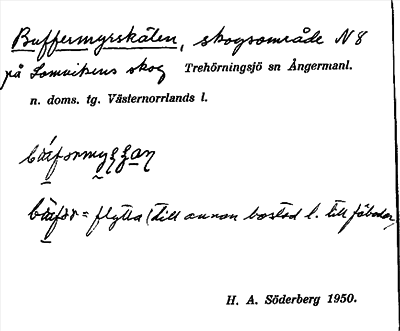 Buffermyrskäten, skogsområde N 8
på Lomvikens skog Trehörningsjö sn Ångermanl.
n. doms. tg. Västernorrlands l.
= flytta (till annan bostad l. till fäboden)
H. A. Söderberg 1950.